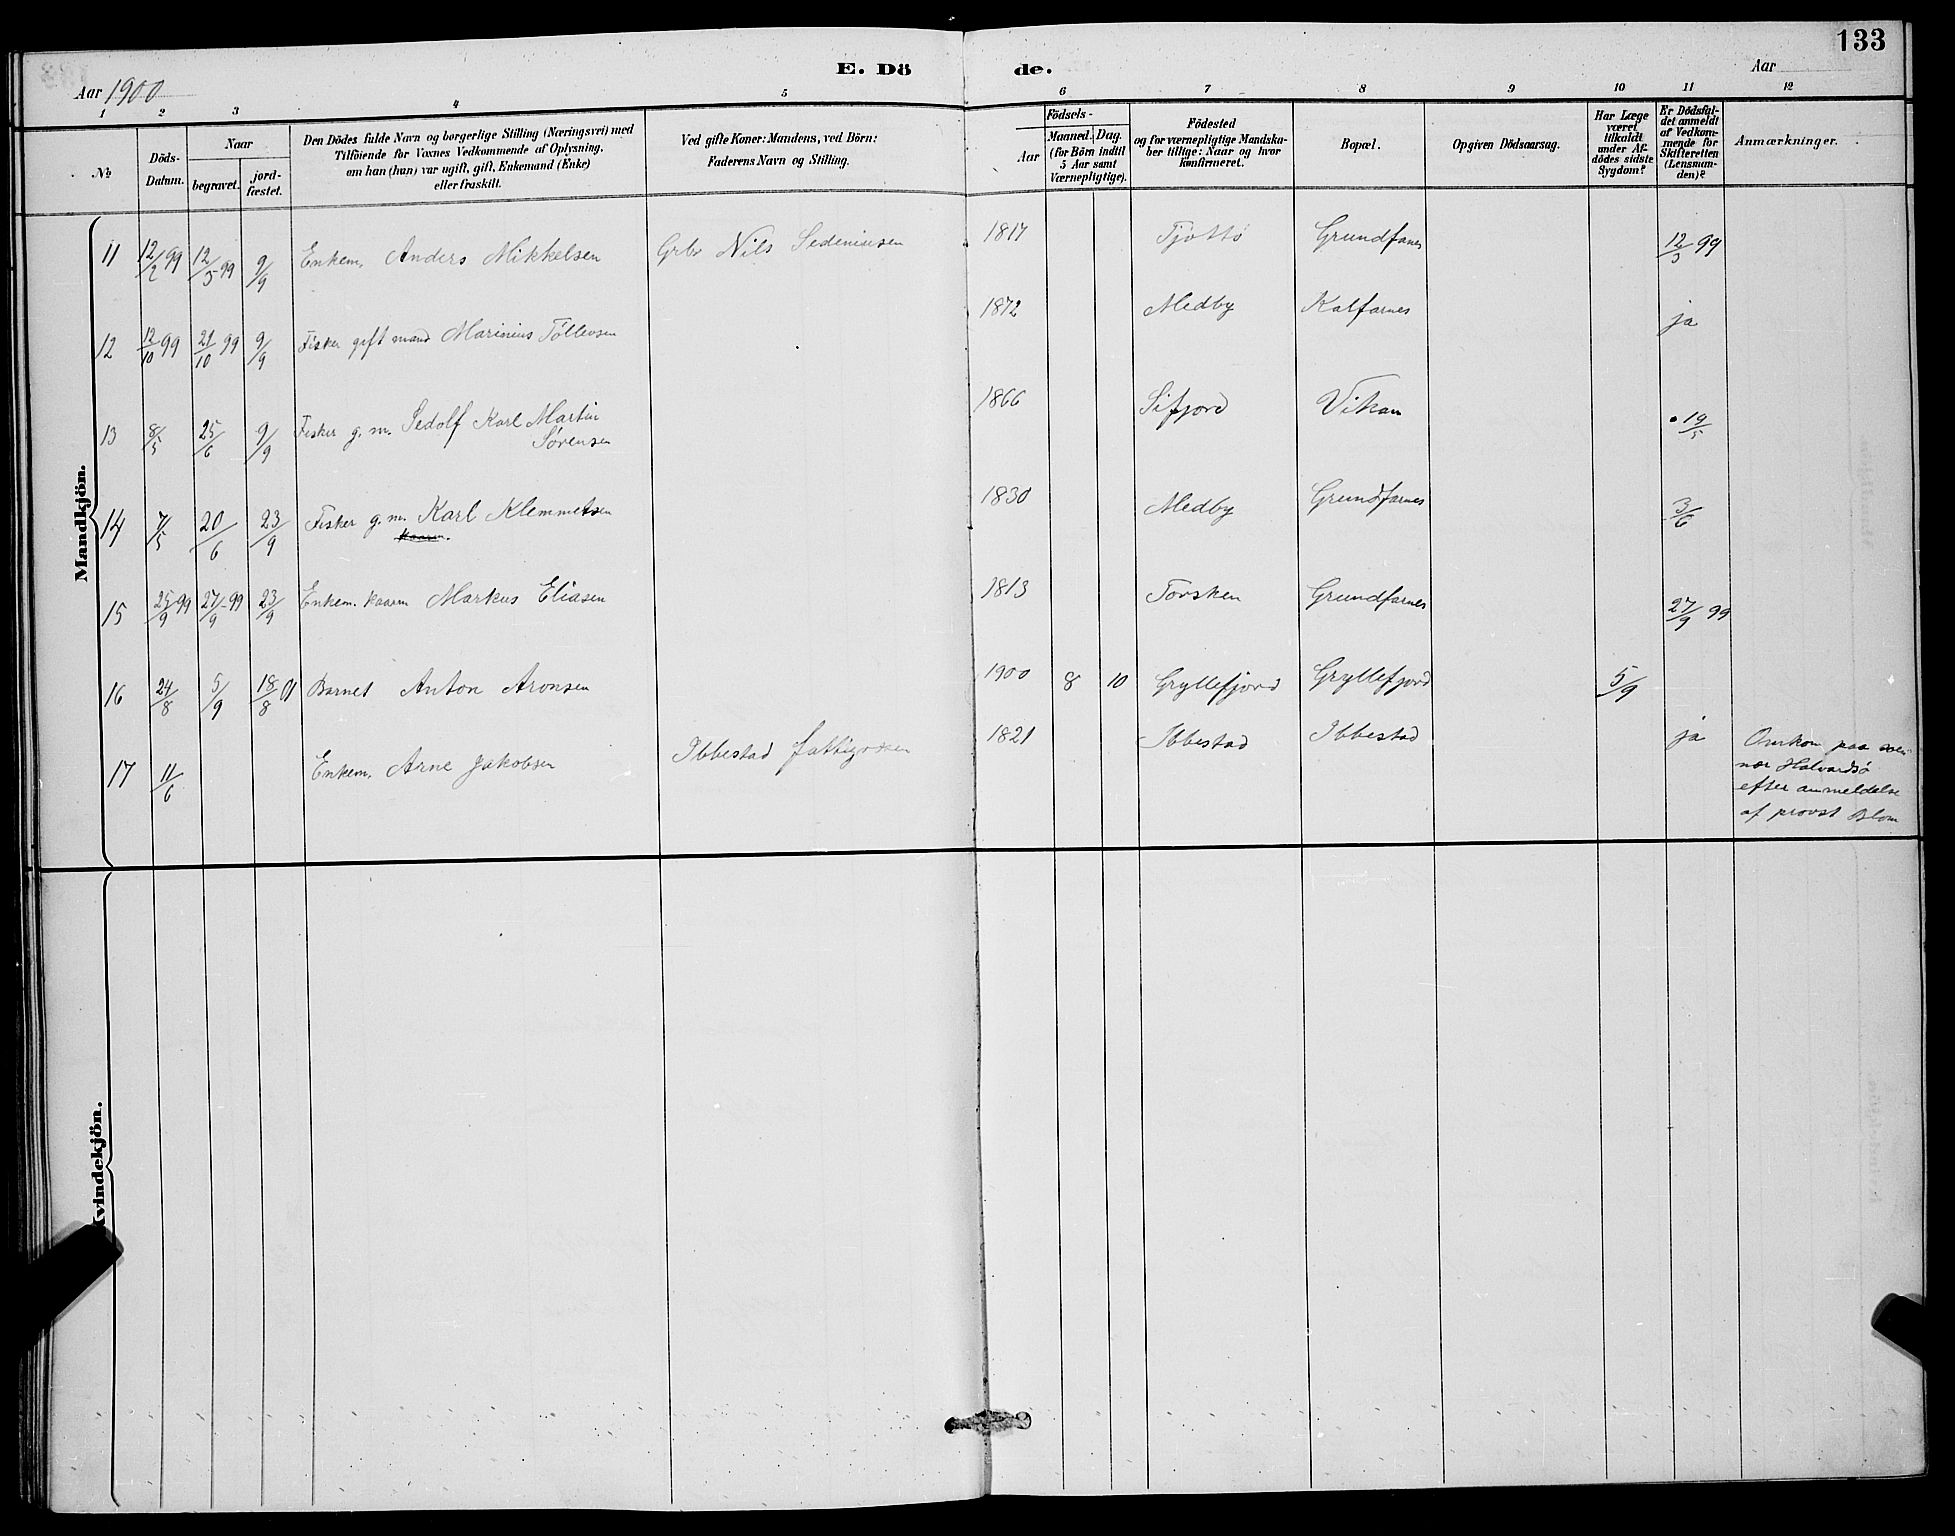 133
E. Dö de.
Aar 1900
Aar
1 2 3 4 5 6 7 8 9 10 11 12
№
Döds-
Datum.
Naar
begravet.
jord-
fæstet.
Den Dödes fulde Navn og borgerlige Stilling (Næringsvei) med
Tilföiende for Voxnes Vedkommende af Oplysning,
om han (hun) var ugift, gift, Enkemand (Enke)
eller fraskilt.
Ved gifte Koner: Mandens, ved Börn:
Faderens Navn og Stilling.
Födsels-
Aar
Maaned. Dag.
(for Börn indtil
5 Aar samt
Værnepligtige).
Födested
og for værnepligtige Mandska-
ber tillige: Naar og hvor
konfirmeret.
Bopæl.
Opgiven Dödsaarsag.
Har Læge
været
tilkaldt
under Af-
dödes sidste
Sygdom?
Er Dödsfal-
det anmeldt
af Vedkom-
mende for
Skifteretten
(Lensman-
den)?
Anmærkninger.
Mandkjön.
11 12/2 99 12/3 99 9/9 Enkem. Anders Mikkelsen Grbr Nils Sedeniusen 1817 Tjøttø Grundfarnes 12/3 99
12 12/10 99 21/10 99 9/9 Fisker gift mand Marinius Tøllevsen 1872 Medby Kalfarnes ja
13 8/5 25/6 9/9 Fisker g. m. Sedolf Karl Martin
Sørensen 1866 Sifjord Vikan 19/5
14 7/5 20/6 23/9 Fisker g. m. Karl Klemmetsen 1830 Medby Grundfarnes 3/6
kaarm.
15 25/9 99 27/9-99 23/9 Enkem. kaarm Markus Eliasen 1813 Torsken Grundfarnes 27/9 99
16 24/8 5/9 18/8 01 Barnet Anton Aronsen 1900 8 10 Gryllefjord Gryllefjord 5/9
17 11/6 Enkem. Arne Jakobsen Ibbestad fattigvæsen 1821 Ibbestad Ibbestad ja
Omkom paa
Halvardsø
efter anmeldelse
af provst Blom
Kvindekjön.